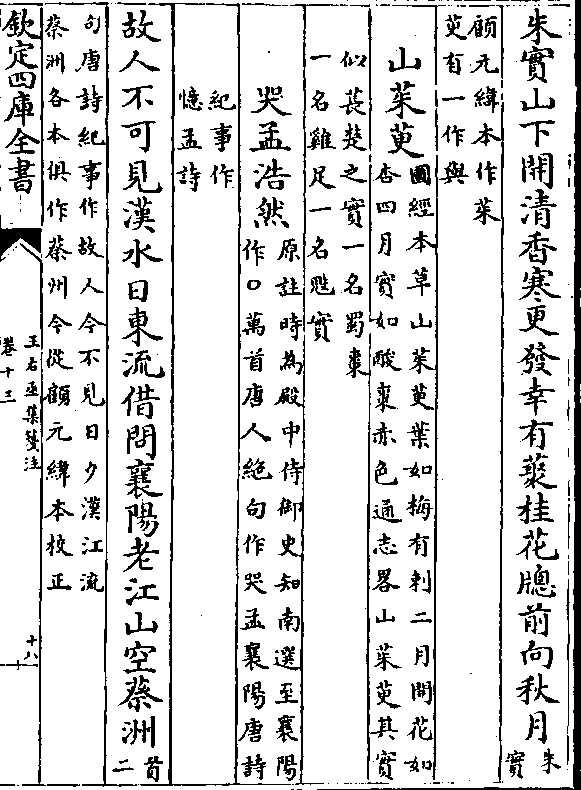 朱實山下開清香寒更發幸有藂桂花牕前向秋月朱
實
顧元緯本作茱
萸有一作與
山茱萸圖經本草山茱萸葉如梅有刺二月開花如
杏四月實如酸棗赤色通志畧山茱萸其實
似萇楚之實一名蜀棗
一名雞足一名鬾實
哭孟浩然原註時為殿中侍御史知南選至襄陽
作口萬首唐人絶句作哭孟襄陽唐詩
紀事作
憶孟詩
故人不可見漢水日東流借問襄陽老江山空蔡洲首
二
句唐詩紀事作故人今不見日夕漢江流
蔡洲各本俱作蔡州今從顧元緯本校正
欽定四庫全書
王右丞集箋注
卷十三
十八